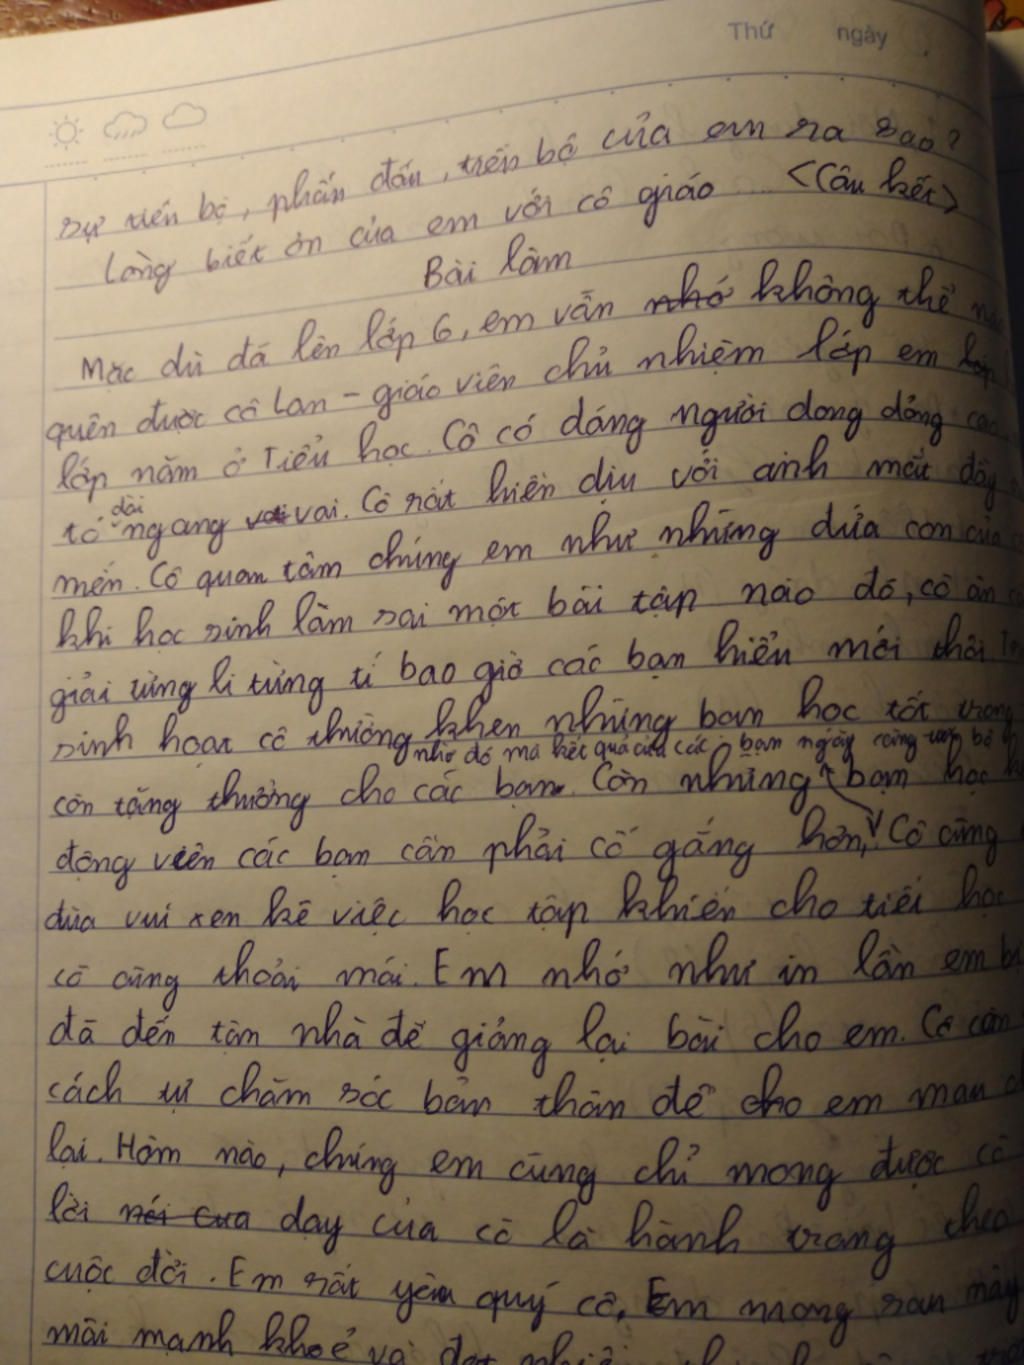 Thứ ngày
sự tiến bộ, phấn đấu, tiến bộ của em ra sao?
Lòng biết ơn của em với cô giáo ... <Câu kết>
Bài làm
Mặc dù đã lên lớp 6, em vẫn nhớ không thể
quên được cô Lan - giáo viên chủ nhiệm lớp em
lớp năm ở Tiểu học. Cô có dáng người dong dỏng
tó dài ngang vai. Cô rất hiền dịu với ánh mắt đầy
mến. Cô quan tâm chúng em như những đứa con của
khi học sinh làm sai một bài tập nào đó, cô ân
giải từng li từng tí bao giờ các bạn hiểu mới thôi
sinh hoạt cô thường khen những bạn học tốt trong
nhờ đó mà kết quả của các bạn ngày càng tiến bộ
còn tặng thưởng cho các bạn. Còn những bạn học
động viên các bạn cần phải cố gắng hơn, Cô cũng
đùa vui xen kẽ việc học tập khiến cho tiết học
cô cũng thoải mái. Em nhớ như in lần em
đã đến tận nhà để giảng lại bài cho em. Cô còn
cách tự chăm sóc bản thân để cho em mau
lại. Hôm nào, chúng em cũng chỉ mong được cô
lời nói của dạy của cô là hành trang theo
cuộc đời. Em rất yêu quý cô. Em mong sau này
mãi mạnh khoẻ và đạt